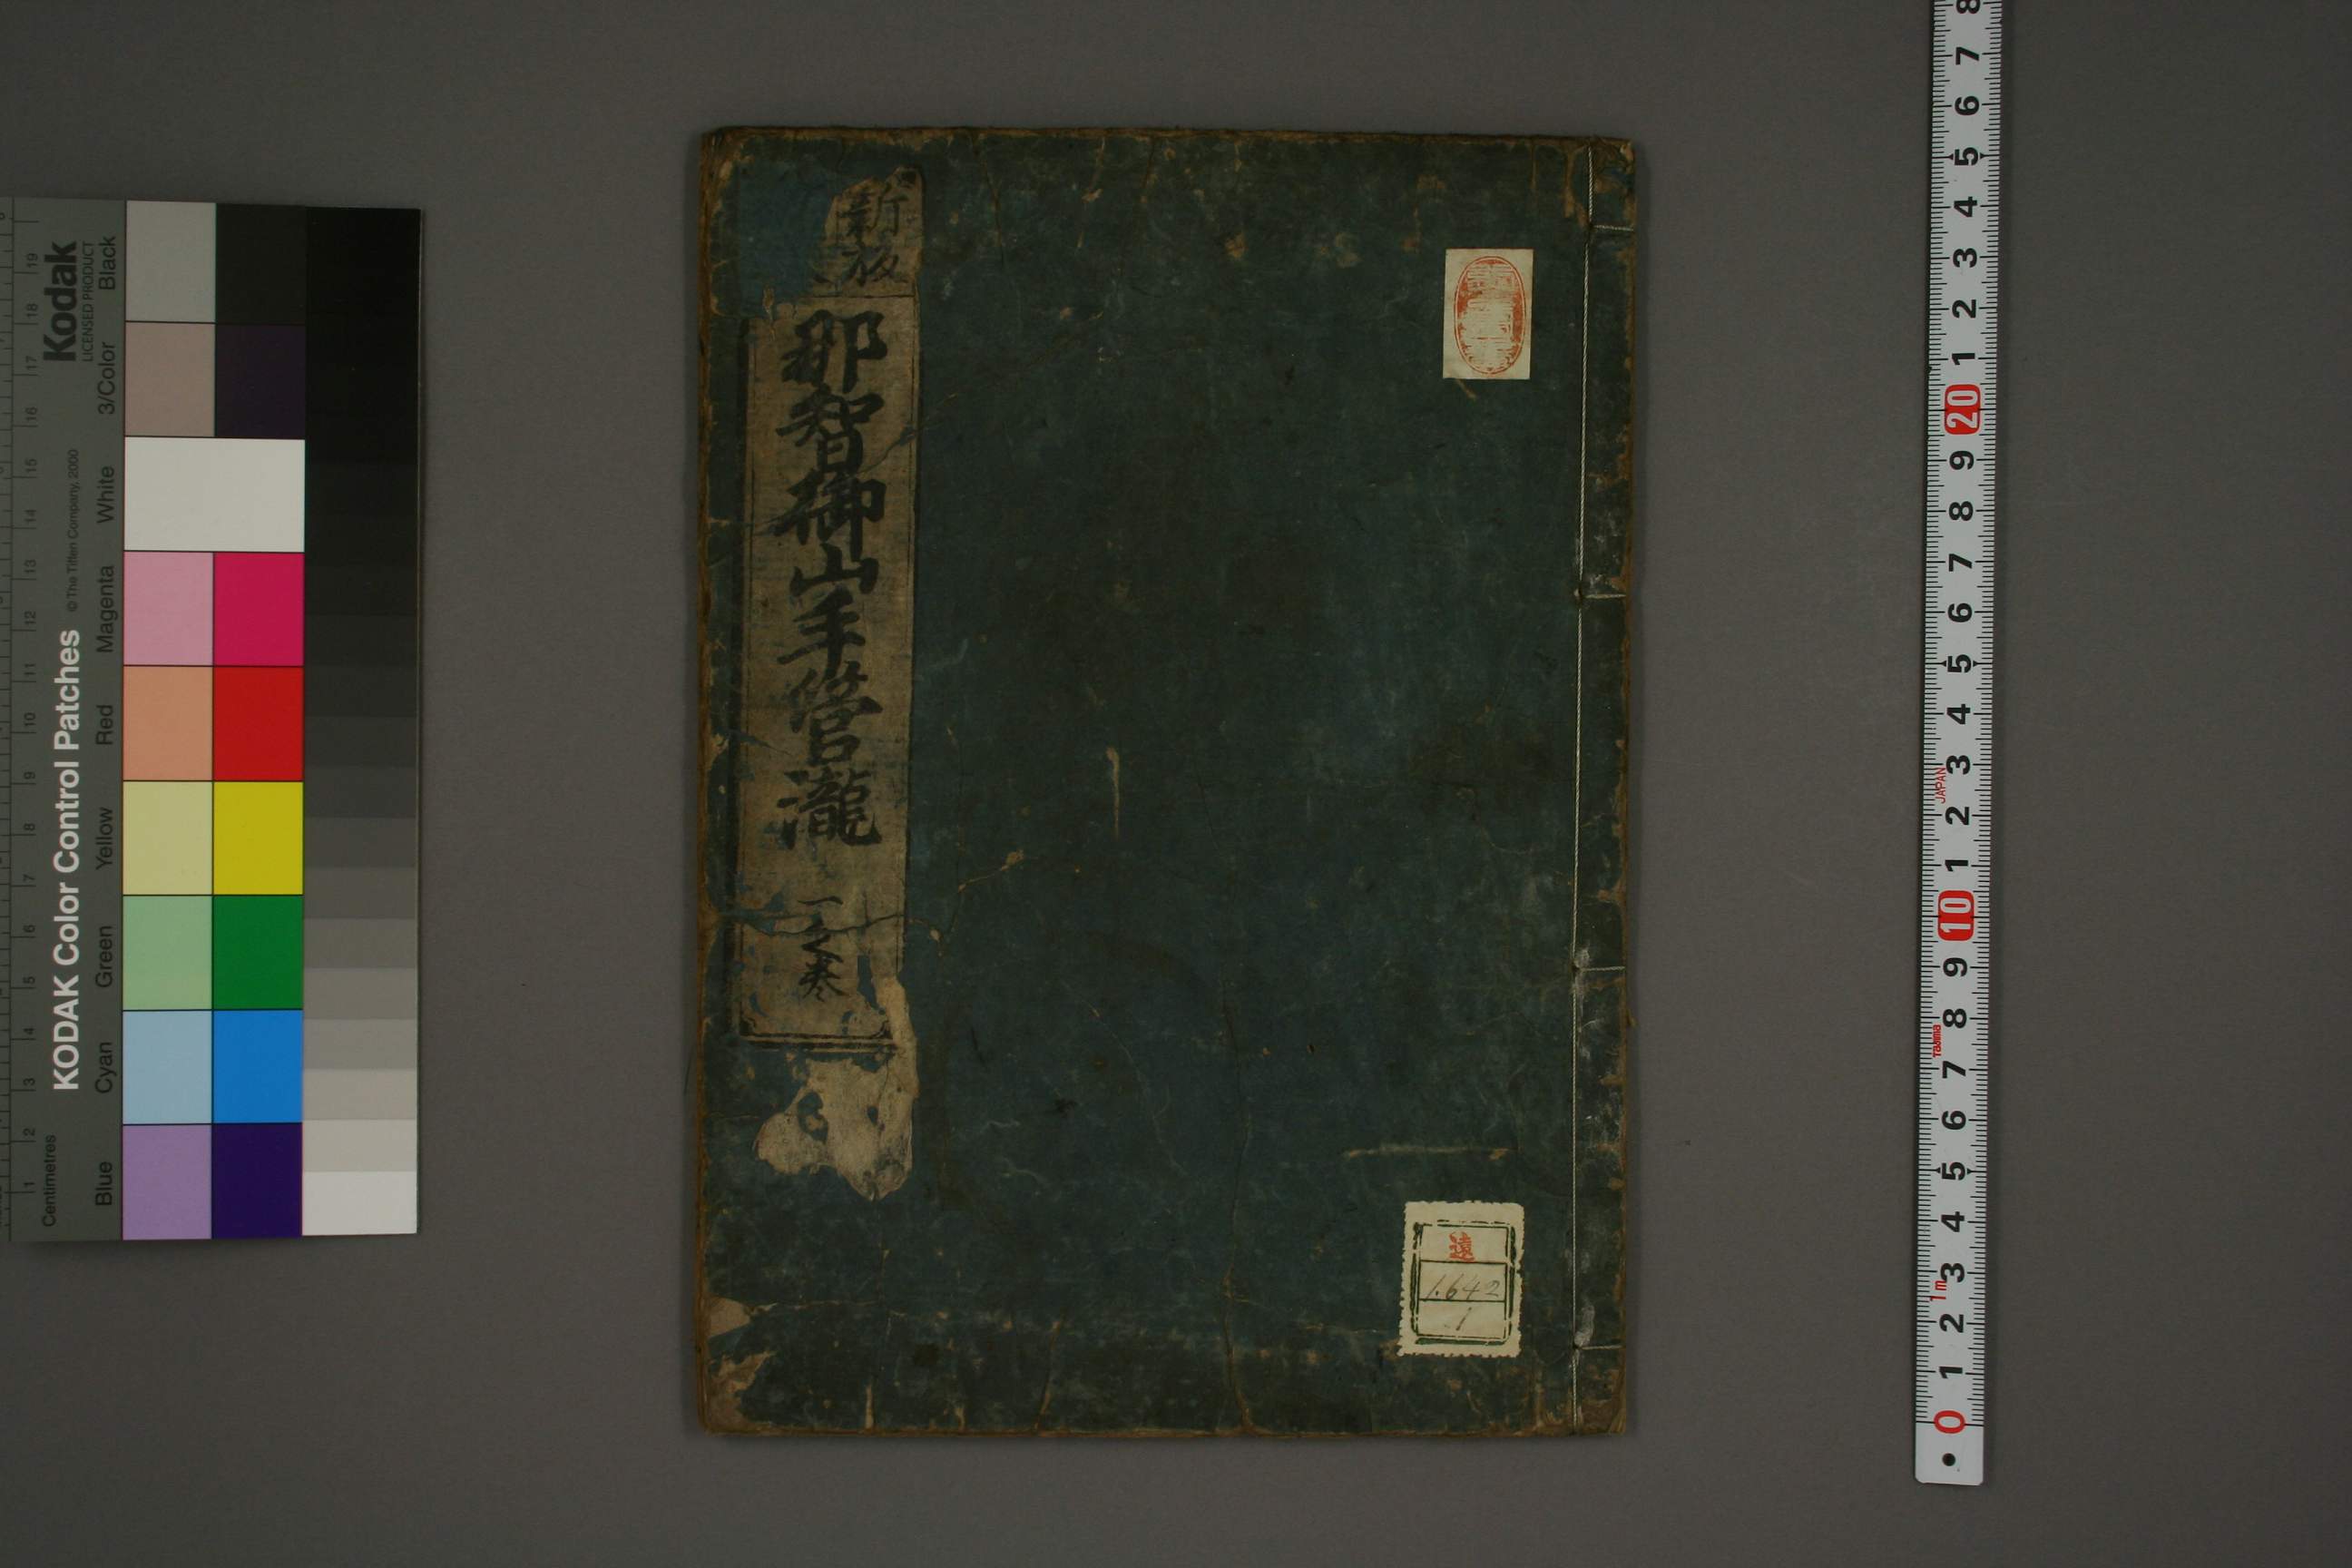 新板
那智御山手管瀧
一之巻
1.642
1
Kodak
LICENSED PRODUCT
KODAK Color Control Patches
© The Tiffen Company, 2000
Centimetres
Blue
Cyan
Green
Yellow
Red
Magenta
White
3/Color
Black
1 2 3 4 5 6 7 8 9 10 11 12 13 14 15 16 17 18 19
0 1 2 3 4 5 6 7 8 9 10 1 2 3 4 5 6 7 8 9 20 1 2 3 4 5 6 7 8
1m
Tajima
JAPAN